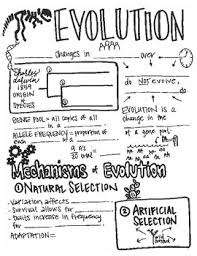 EVOLUTION
changes in over
Charles Darwin
1859
ORIGIN
of
SPECIES
do NOT evolve,
do.
EVOLUTION is a
change in the
GENE POOL = all copies of all
in a
of a gene pool
ALLELE FREQUENCY = proportion of
each in a
Mechanisms of Evolution
① NATURAL SELECTION
- Variation affects
- Survival allows for
- Traits increase in frequency
for
ADAPTATION=
② ARTIFICIAL
SELECTION